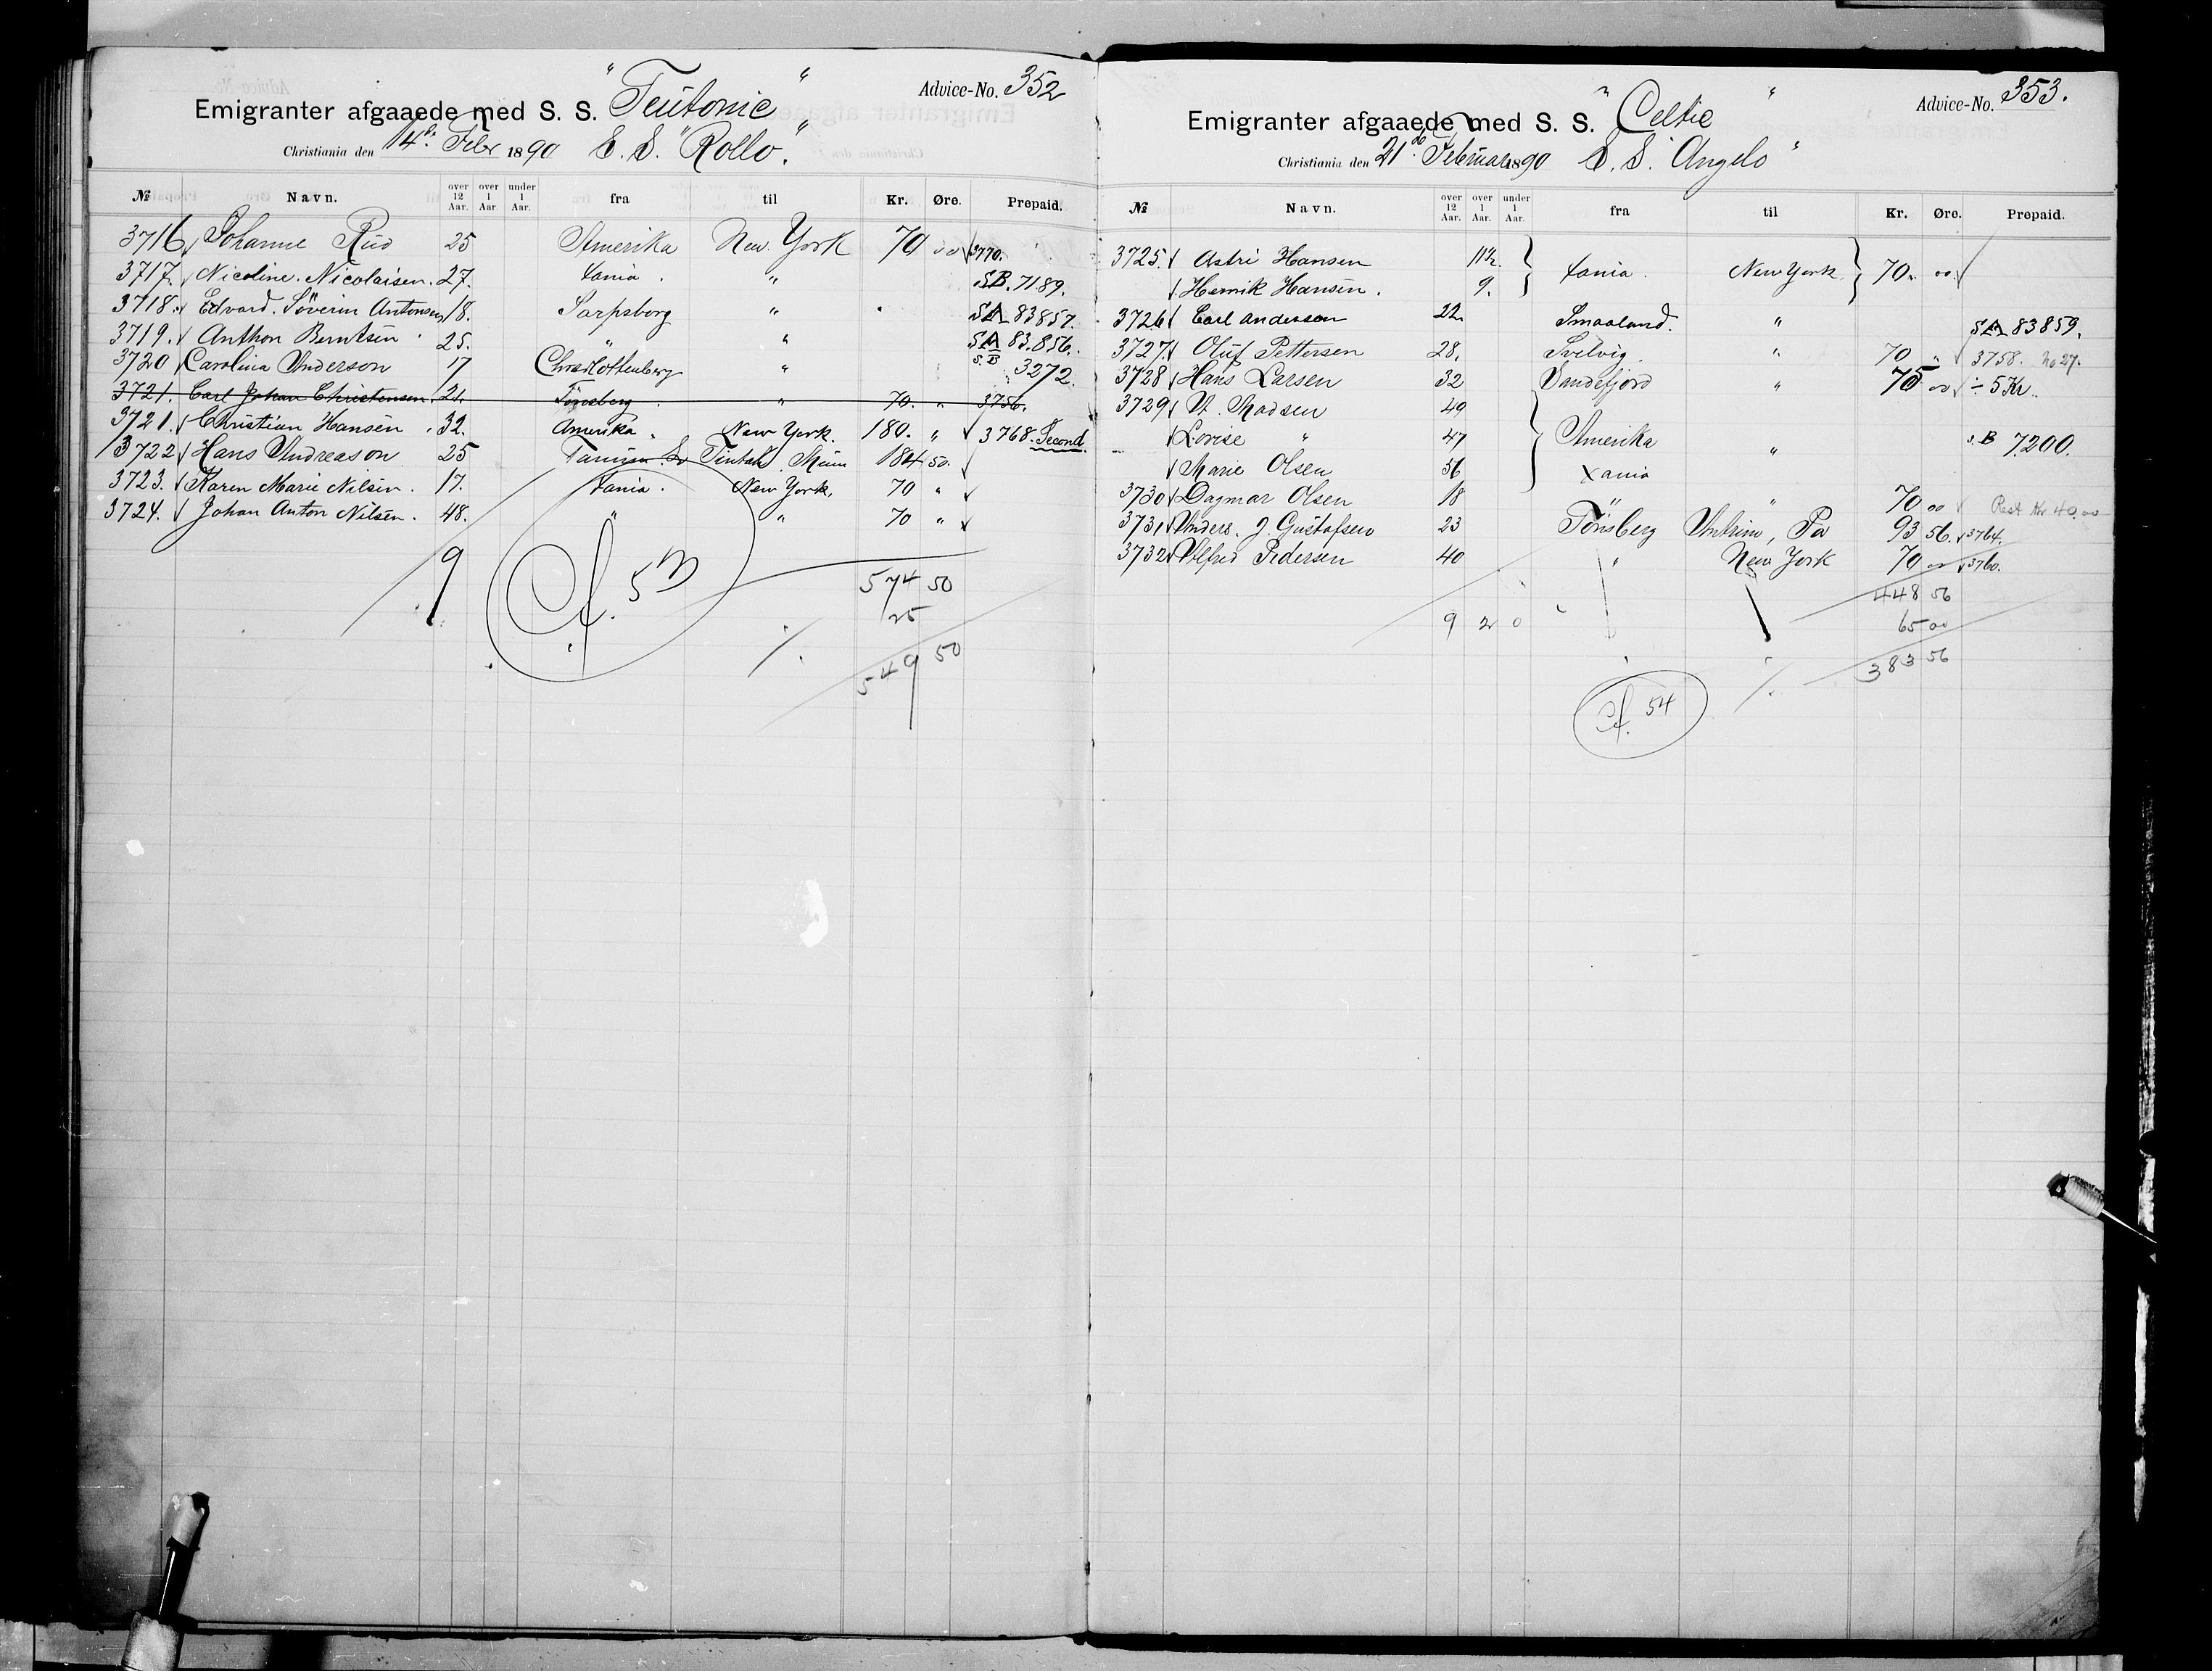 Advice-No. 352
Emigranter afgaaede med S. S. "Teutonic"
Christiania den 14de Febr 1890 S. S. "Rollo".
No Navn. over 12 Aar. over 1 Aar. under 1 Aar. fra til Kr. Øre. Prepaid.
3716 Johanne Rud 25 Amerika New York 70 00 3770.
3717. Nicoline Nicolaisen. 27. Xania. " SB. 7189.
3718. Edvard Söverin Antonsen 18. Sarpsborg " SA 83857.
3719. Anthon Berntsen 25. " " SA 83.856.
3720 Carolina Anderson 17 Charlottenberg " S.B 3272.
3721. Carl Johan Christensen. 21. Tönsberg " 70. " 3756.
3721. Christian Hansen 32. Amerika. New York. 180. " 3768. Second.
3722 Hans Andreason 25 Tintah Minn 184 50.
3723. Karen Marie Nilsen. 17. Xania. New York, 70 "
3724. Johan Anton Nilsen. 48. " " 70 "
9 Cf. 53 574 50
25
549 50
Advice-No. 353.
Emigranter afgaaede med S. S. "Celtic"
Christiania den 21de Februar 1890 S. S. "Angelo"
No Navn. over 12 Aar. over 1 Aar. under 1 Aar. fra til Kr. Øre. Prepaid.
3725. Astri Hansen 11½ Xania. New York 70. 00.
Henrik Hansen. 9.
3726 Carl Anderson 22 Smaaland. " SA 83859.
3727. Oluf Pettersen 28. Svelvig. " 70 " 3758. No 27.
3728 Hans Larsen 32 Sandefjord " 75 00 ÷ 5 Kr.
3729 Madsen 49
Lovise " 47 Amerika " S.B 7200.
Marie Olsen 56 Xania
3730 Dagmar Olsen 18 " 70 00 Rest Kr 40.00
3731 Anders. J. Gustafsen 23 Tönsberg Antrim, Pa 93 56. 3764.
3732 Alfred Pedersen 40 " New York 70 00 3760.
448 56
9 2 0 65 00
383 56
Cf. 54